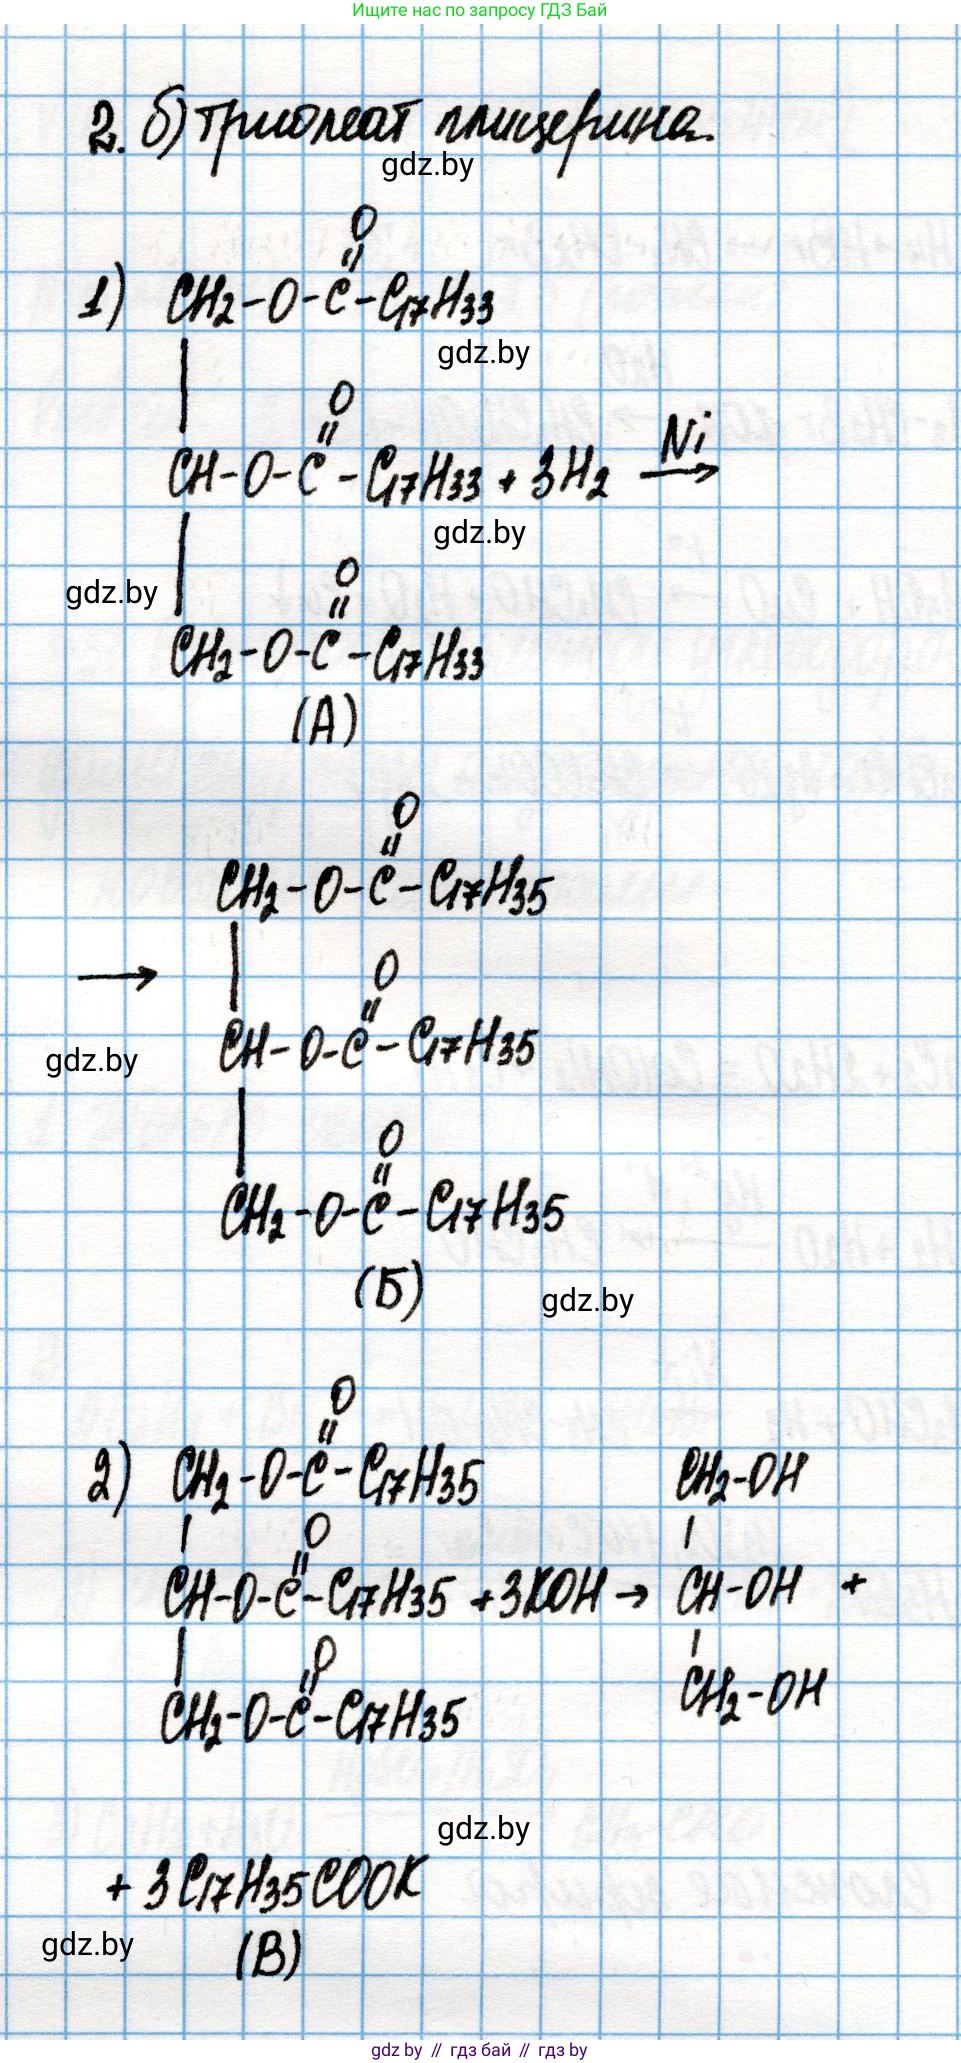 Ищите нас по запросу ГДЗ Бай
2. б) триолеат глицерина.
gdz.by
O
1) CH2-O-C-C17H33
gdz.by
O
Ni
CH-O-C-C17H33 + 3H2 →
gdz.by
O
gdz.by
CH2-O-C-C17H33
(А)
O
CH2-O-C-C17H35
→
O
CH-O-C-C17H35
gdz.by
O
CH2-O-C-C17H35
(Б)
gdz.by
O
2) CH2-O-C-C17H35 CH2-OH
O
CH-O-C-C17H35 + 3KOH → CH-OH +
O
CH2-O-C-C17H35 CH2-OH
gdz.by
+ 3C17H35COOK
gdz.by
(В)
gdz by // гдз бай // гдз by